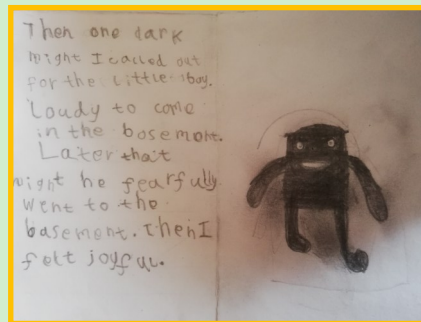 Then one dark
night I called out
for the little boy.
Loudy to come
in the bosement.
Later that
night he fearfully
went to the
basement. Then I
felt joyful.